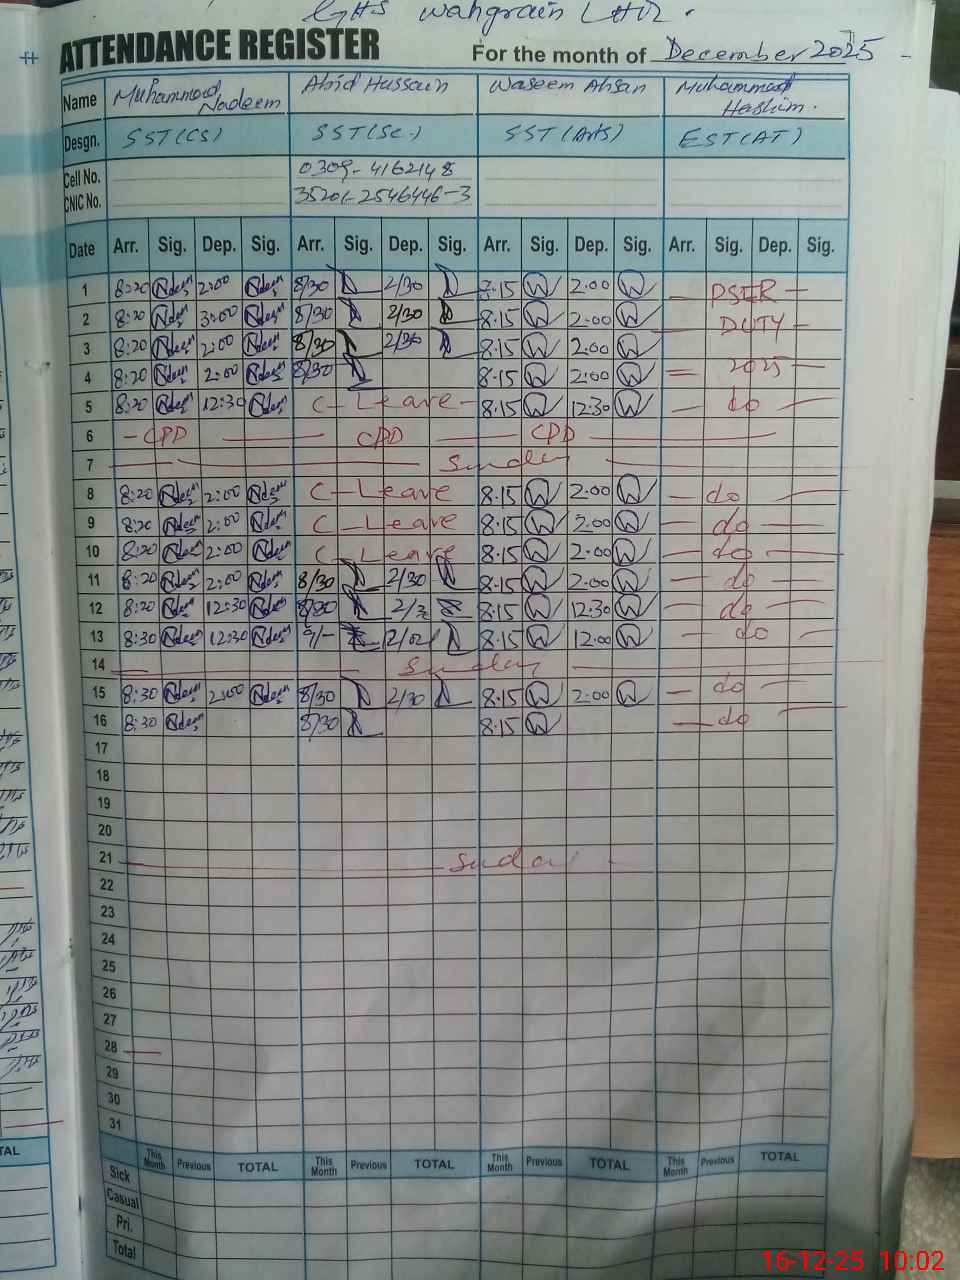 GHS Wahgrain LHR.
ATTENDANCE REGISTER For the month of December 2025
Name Muhammad Nadeem Abid Hussain Waseem Ahsan Muhammad Hashim.
Desgn. SST(CS) SST(SC.) SST(Arts) EST(AT)
Cell No. 0309-4162148
CNIC No. 35201-2546446-3
Date Arr. Sig. Dep. Sig. Arr. Sig. Dep. Sig. Arr. Sig. Dep. Sig. Arr. Sig. Dep. Sig.
1 8:20 Nadeem 2:00 Nadeem 8/30 2/30 8.15 W 2.00 W PSER
2 8:20 Nadeem 3:00 Nadeem 8/30 2/30 8.15 W 2.00 W DUTY
3 8:20 Nadeem 2:00 Nadeem 8/30 2/30 8.15 W 2.00 W
4 8:20 Nadeem 2:00 Nadeem 8/30 8.15 W 2.00 W 2025
5 8:20 Nadeem 12:30 Nadeem C-Leave- 8.15 W 12:30 W do
6 -CPD CPD CPD
7 Sunday
8 8:20 Nadeem 2:00 Nadeem C-Leave 8.15 W 2.00 W do
9 8:20 Nadeem 2:00 Nadeem C-Leave 8.15 W 2.00 W do
10 8:20 Nadeem 2:00 Nadeem C-Leave 8.15 W 2.00 W do
11 8:20 Nadeem 2:00 Nadeem 8/30 2/30 8.15 W 2.00 W do
12 8:20 Nadeem 12:30 Nadeem 8/30 8.15 W 12:30 W do
13 8:30 Nadeem 12:30 Nadeem 9/- 8.15 W 12.00 W do
14 Sunday
15 8:30 Nadeem 2:00 Nadeem 8/30 2/30 8.15 W 2.00 W do
16 8:30 Nadeem 8/30 8.15 W do
17
18
19
20
21 Sunday
22
23
24
25
26
27
28
29
30
31
This Month Previous TOTAL This Month Previous TOTAL This Month Previous TOTAL This Month Previous TOTAL
Sick
Casual
Pri.
Total
16-12-25 10:02